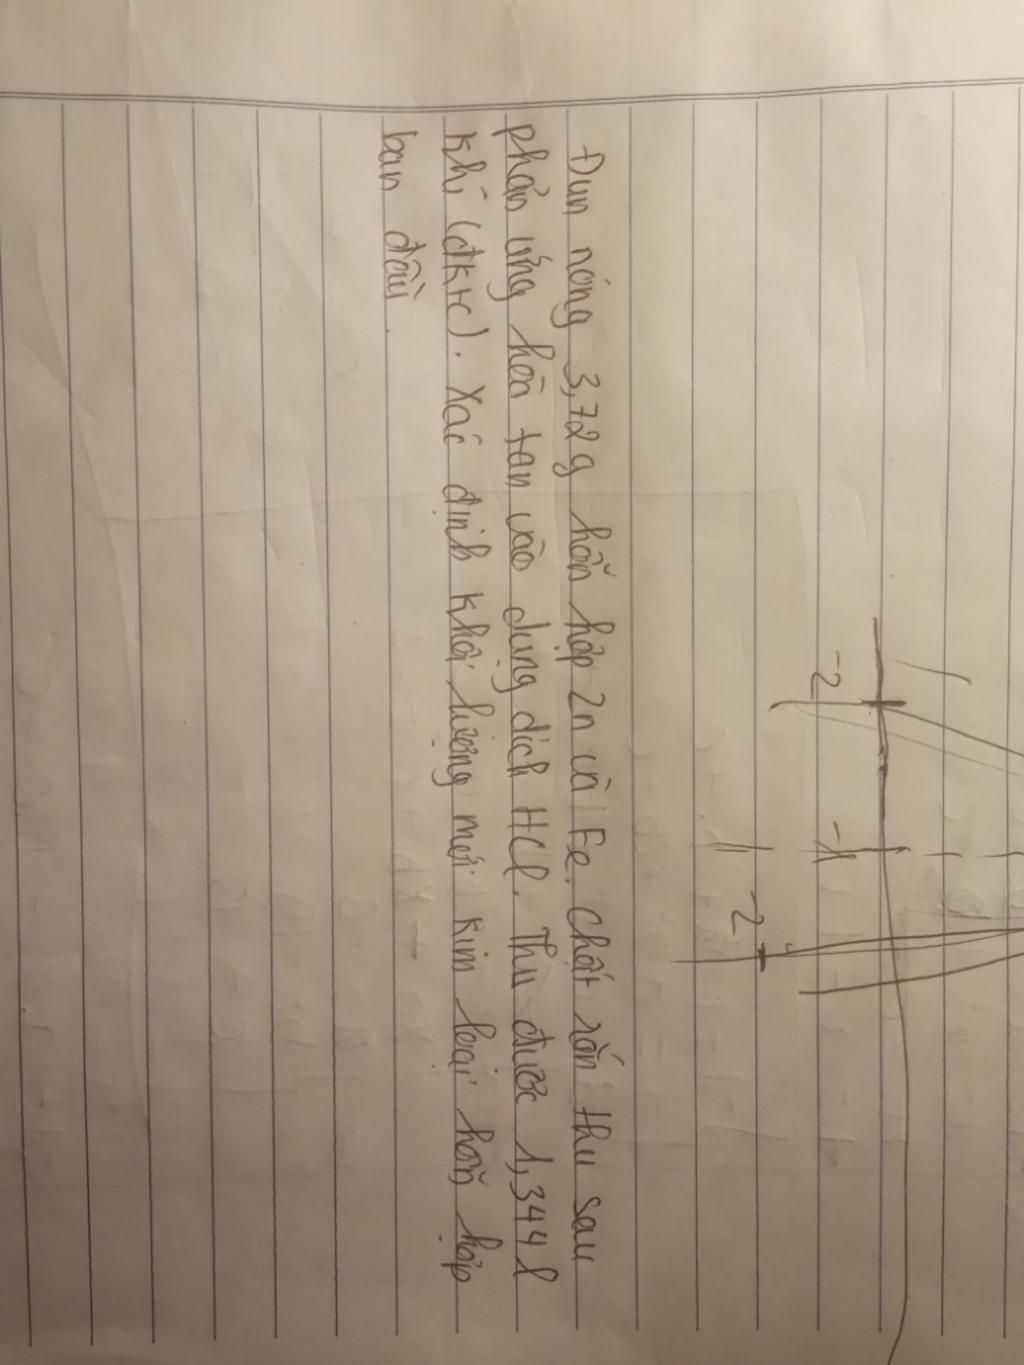 Đun nóng 3,72g hỗn hợp Zn và Fe. Chất rắn thu sau
phản ứng hòa tan vào dung dịch HCl. Thu được 1,344l
khí (đktc). Xác định khối lượng mỗi kim loại hỗn hợp
ban đầu.
-2
-1
-2